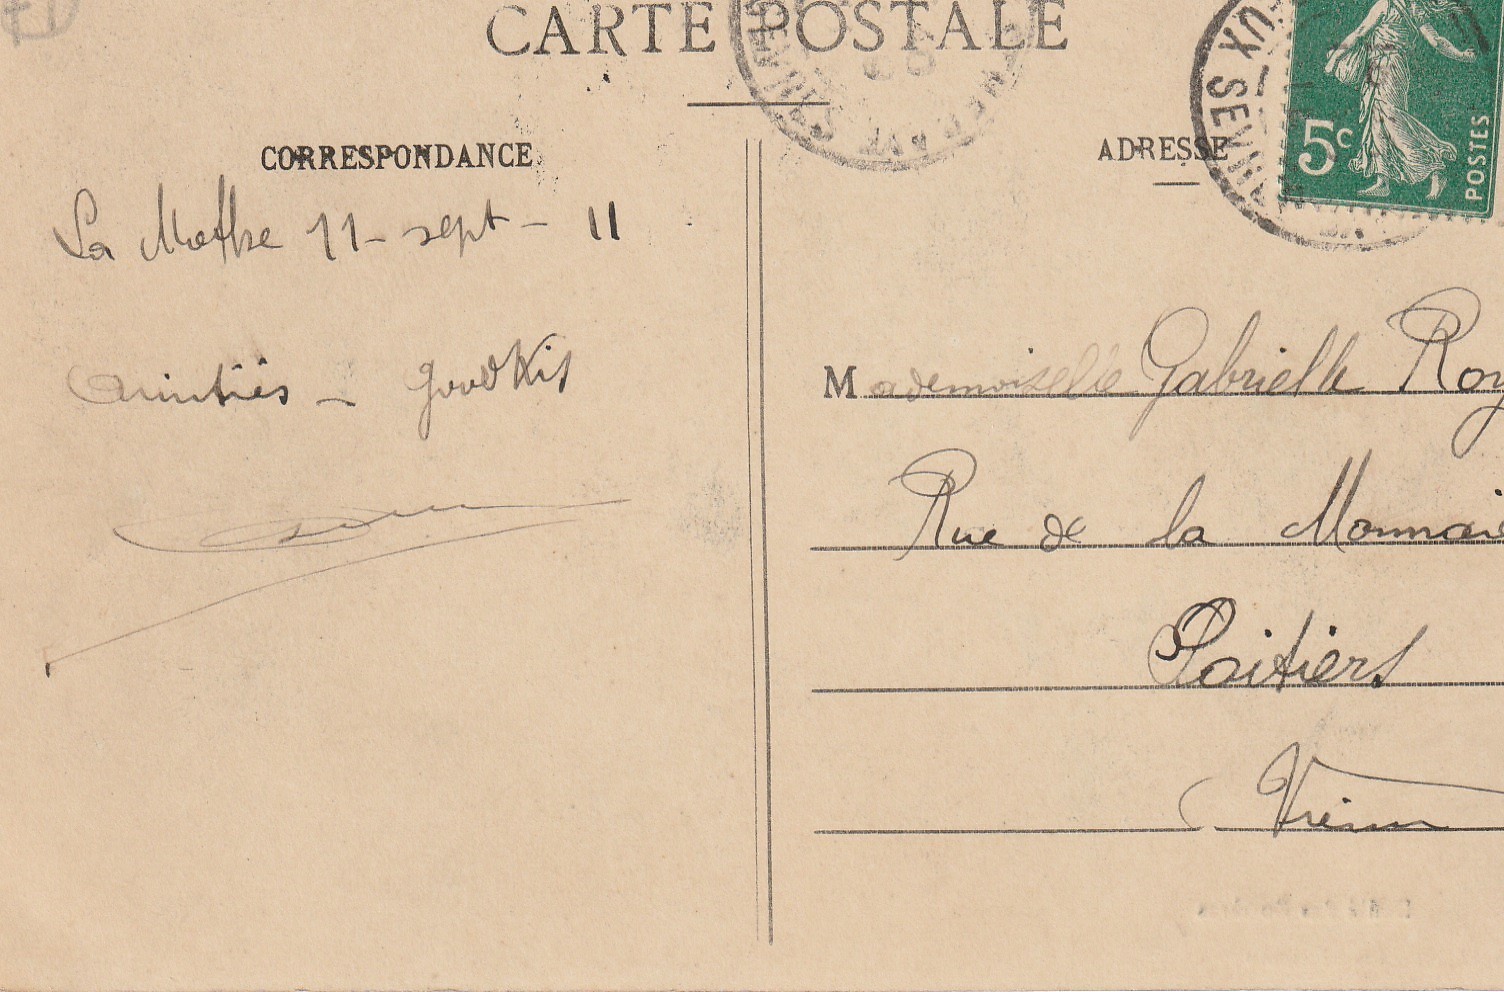 CARTE POSTALE
CORRESPONDANCE
La Mothe 11 - sept - 11
Amitiés - Good Kis
ADRESSE
UX SEVR
5c
POSTES
Mademoiselle Gabrielle Roy
Rue de la Monnaie
Poitiers
(Vienne